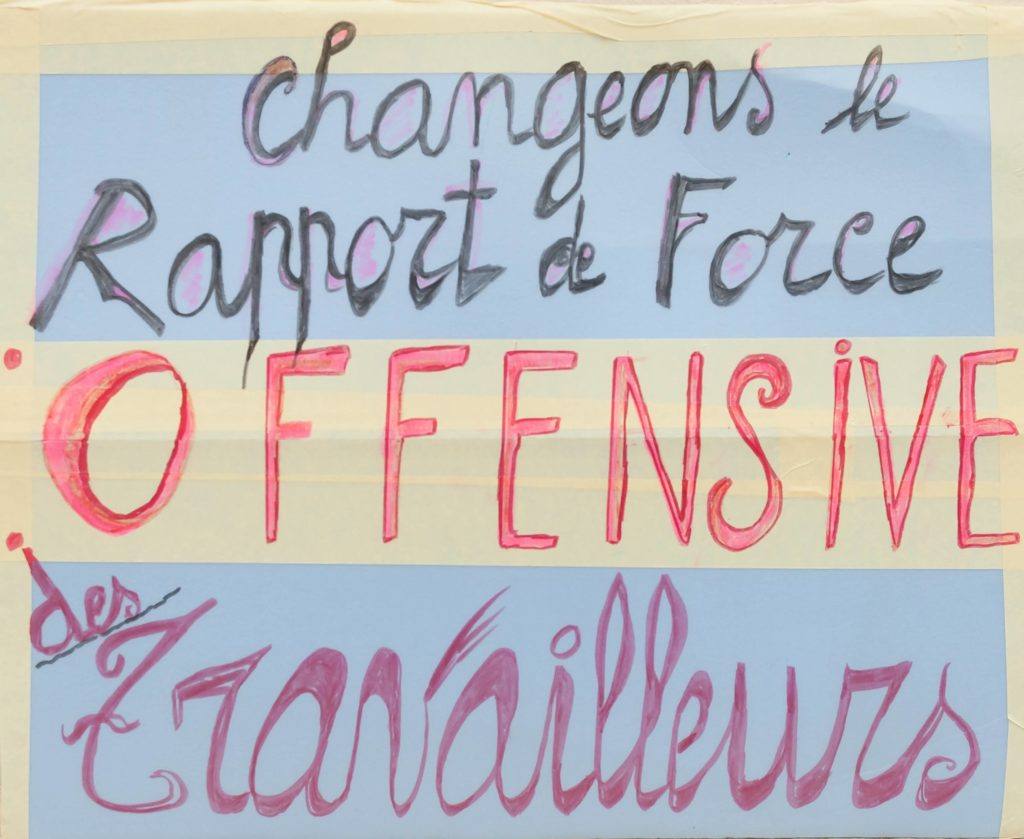 Changeons le
Rapport de Force
: OFFENSIVE
des
Travailleurs